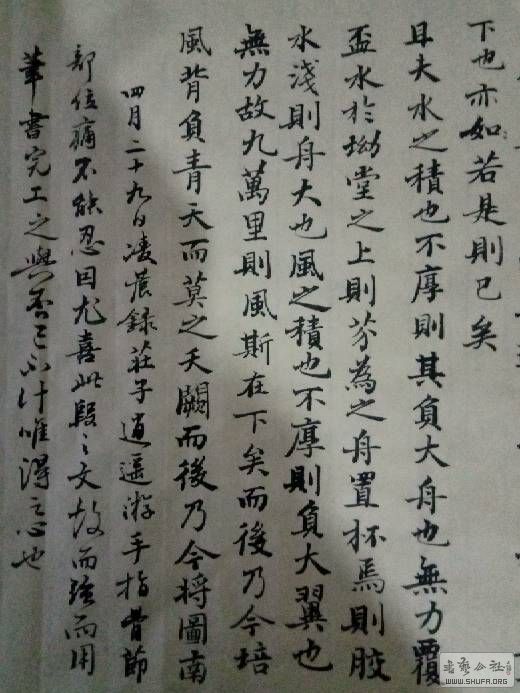 下也亦如若是則已矣
且夫水之積也不厚則其負大舟也無力覆
盃水於坳堂之上則芥為之舟置杯焉則膠
水淺則舟大也風之積也不厚則負大翼也
無力故九萬里則風斯在下矣而後乃今培
風背負青天而莫之夭閼而後乃今将圖南
四月二十九日凌晨錄莊子逍遥游手指骨節
部位痛不能忍因尤喜此段之文故而強而用
筆書完工之與否已不计唯得之心也
WWW.SHUFA.ORG